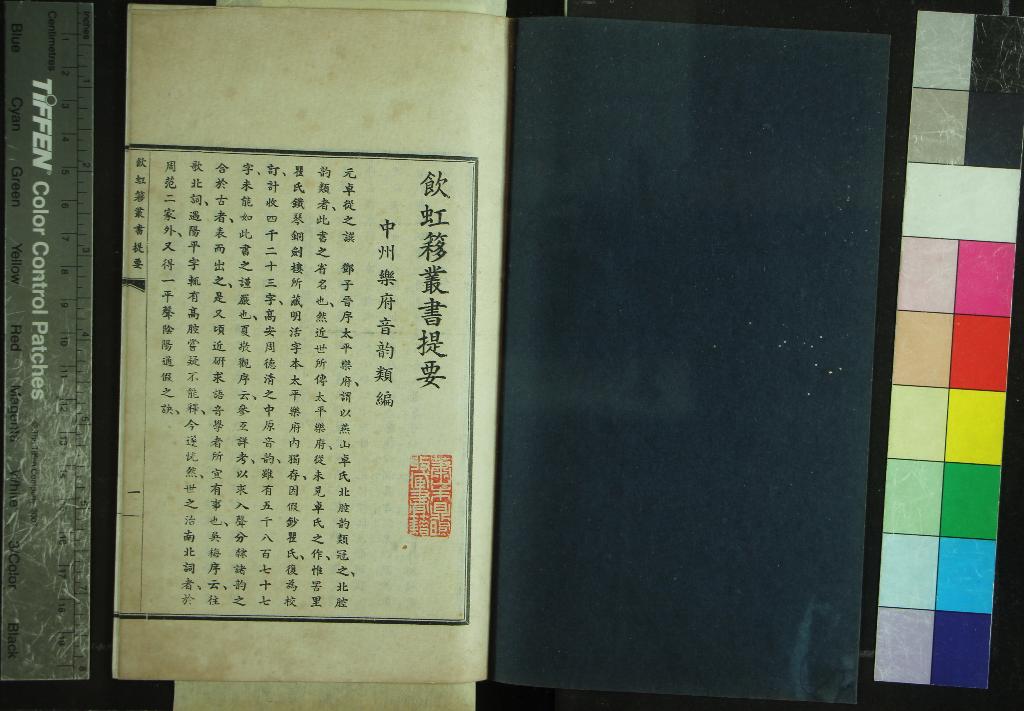 飲虹簃叢書提要
中州樂府音韵類編
元卓從之譔　鄧子晉序太平樂府、謂以燕山卓氏北腔韵類冠之、北腔
韵類者、此書之省名也、然近世所傳太平樂府、從未見卓氏之作、惟罟里
瞿氏鐵琴銅劍樓所藏明活字本太平樂府內獨存、因假鈔瞿氏、復為校
訂、計收四千二十三字、高安周德清之中原音韵、雖有五千八百七十七
字、未能如此書之謹嚴也、夏敬觀序云、參互詳考、以求入聲分隸諸韵之
合於古者、表而出之、是又頃近研求語音學者所宜有事也、吳梅序云、往
歌北詞、遇陽平字輒有高腔、嘗疑不能釋、今遂恍然、世之治南北詞者、於
周范二家外、又得一平聲陰陽通假之訣、
飲虹簃叢書提要
一
TIFFEN Color Control Patches
Inches
Centimetres
Blue
Cyan
Green
Yellow
Red
Magenta
White
3/Color
Black